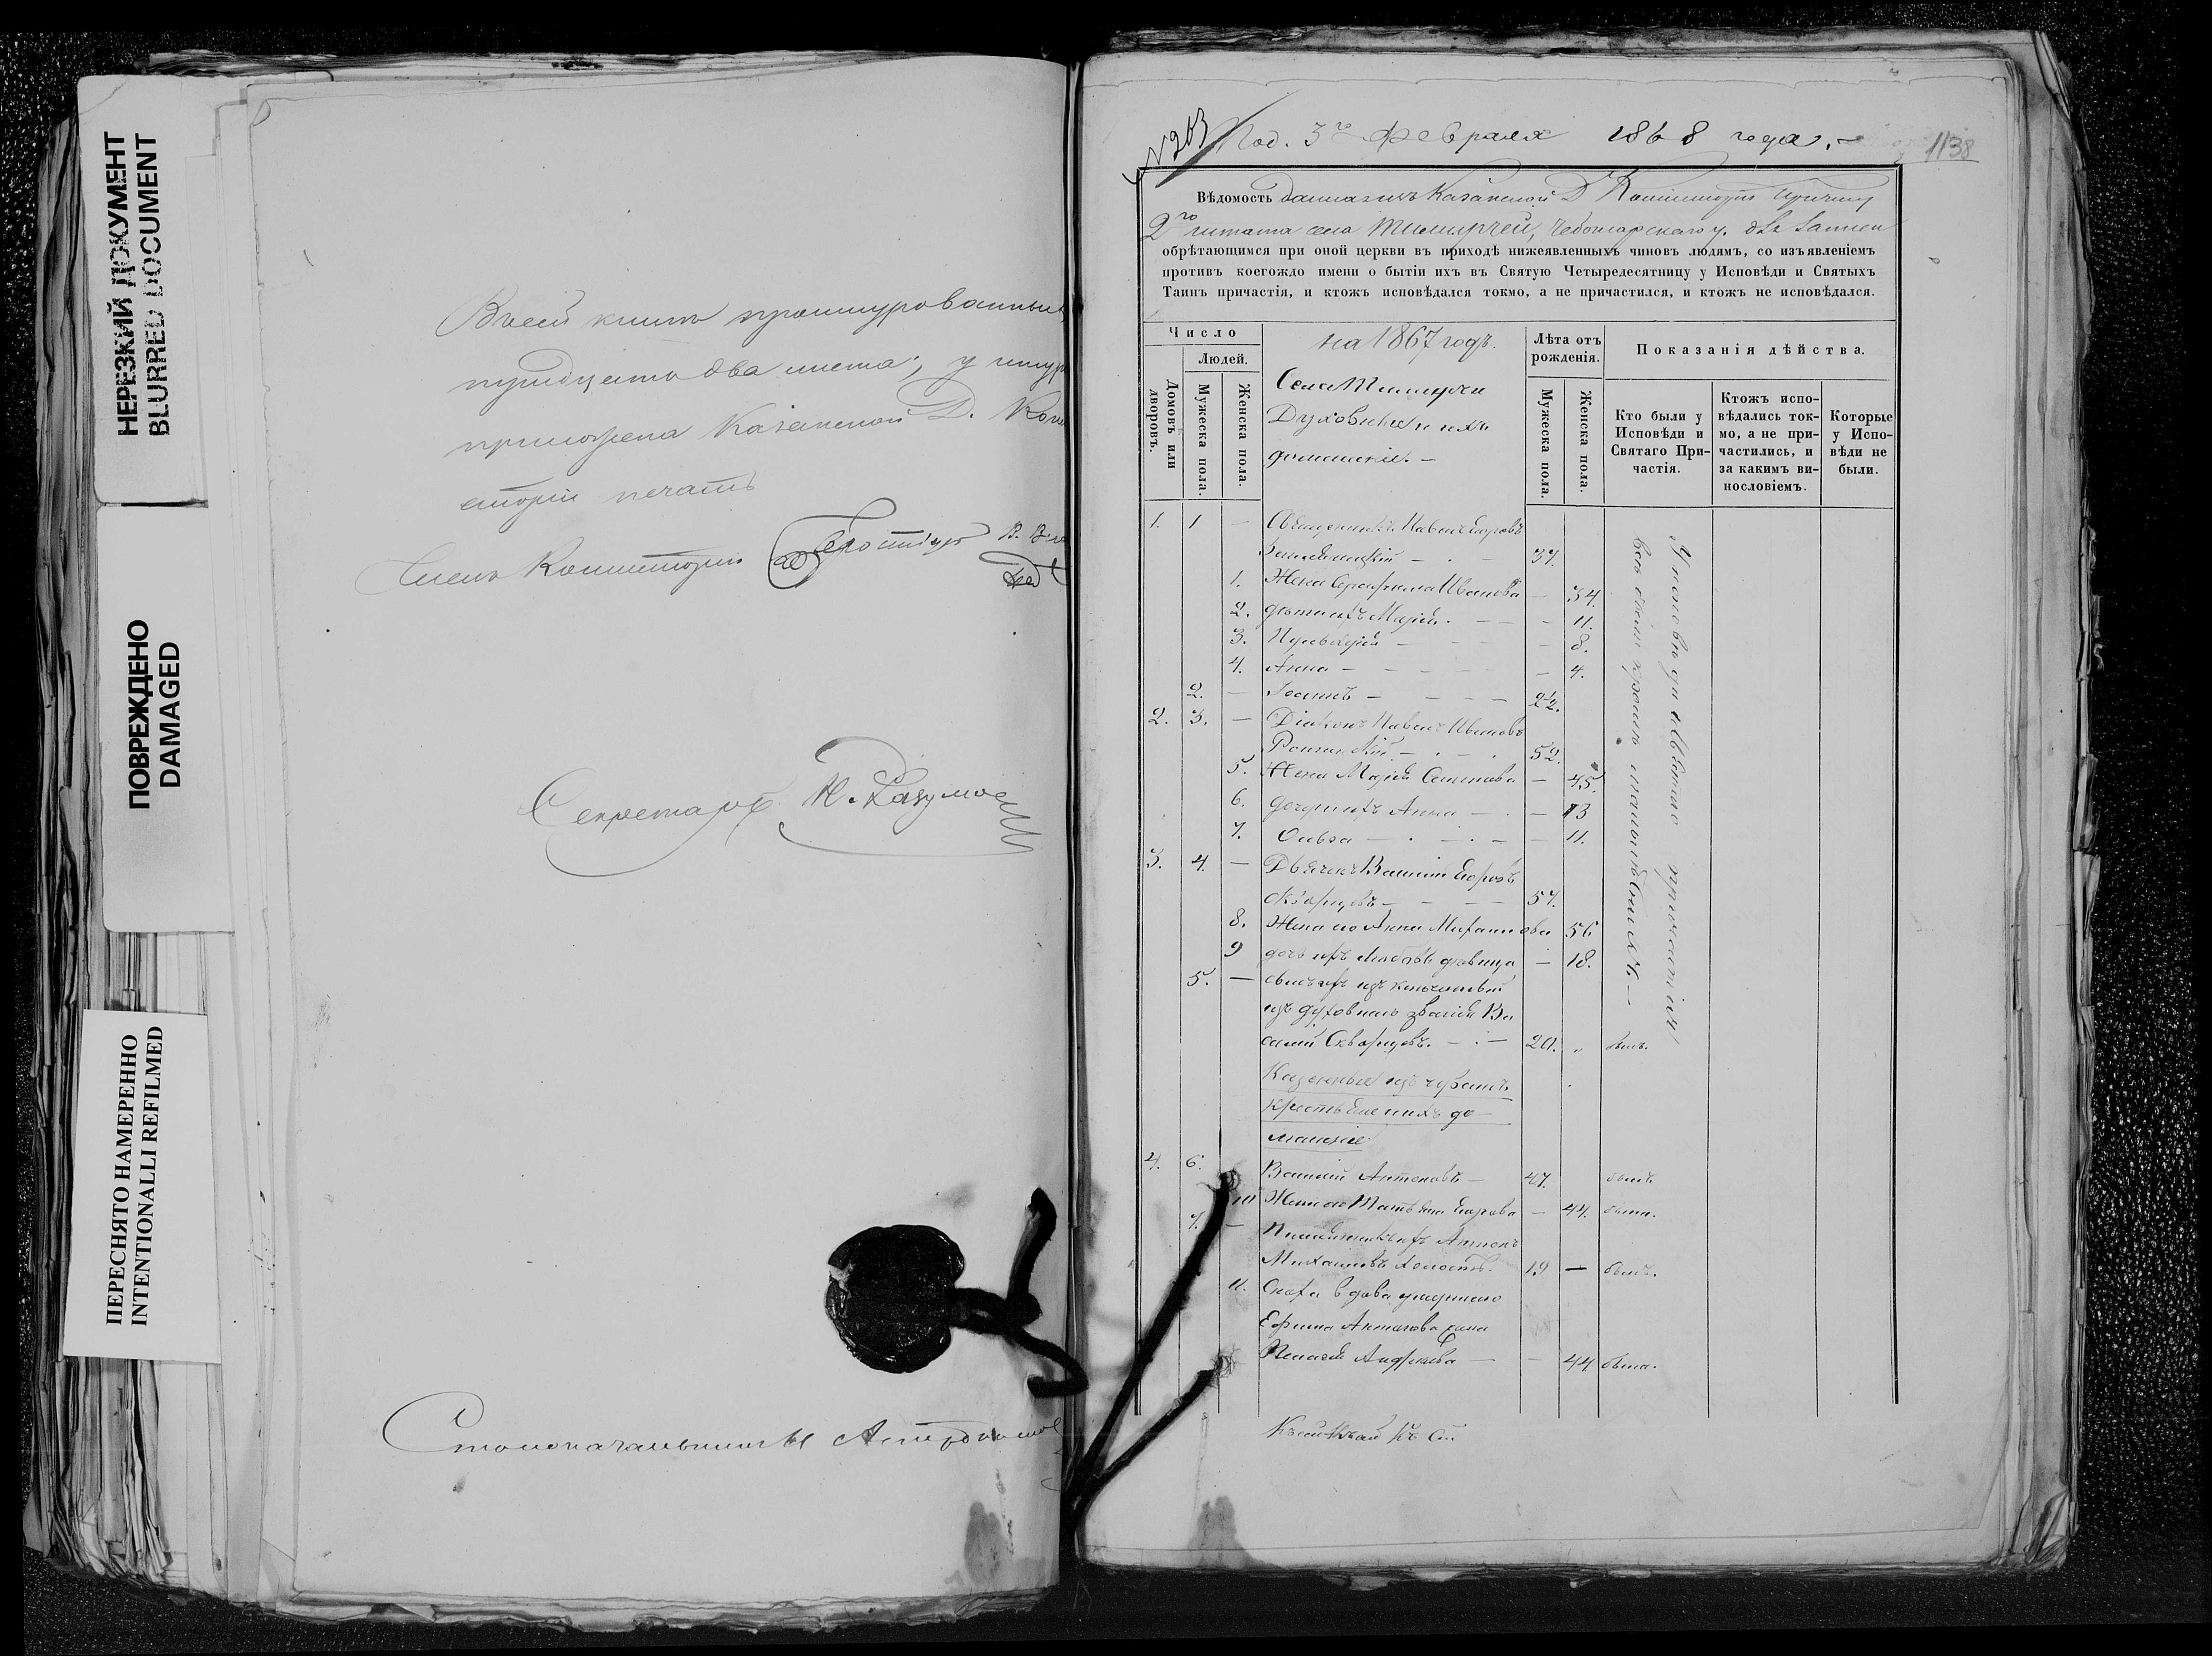 НЕРЕЗКИЙ ДОКУМЕНТ
BLURRED DOCUMENT
ПОВРЕЖДЕНО
DAMAGED
ПЕРЕСНЯТО НАМЕРЕННО
INTENTIONALLI REFILMED
Въ сей книгѣ прошнурованныхъ
тридцать два листа; у шнура
приложена Казанской Д. Кон
систоріи печать
Членъ Консисторіи
Секретарь
Столоначальникъ
№ 263 Под. 3го Февраля 1868 года.
1138
Вѣдомость данная изъ Казанской Д. Консисторіи причту
2го штата села Тимирчей, Чебоксарскаго у. для записи
обрѣтающимся при оной церкви въ приходѣ нижеявленныхъ чиновъ людямъ, со изъявленіемъ
противъ коегождо имени о бытіи ихъ въ Святую Четыредесятницу у Исповѣди и Святыхъ
Таинъ причастія, и ктожъ исповѣдался токмо, а не причастился, и ктожъ не исповѣдался.
Число
Людей.
Домовъ или дворовъ.
Мужеска пола.
Женска пола.
на 1867 годъ.
Села Тимирчи
Духовные и ихъ
домашніе. —
Лѣта отъ рожденія.
Мужеска пола.
Женска пола.
Показанія дѣйства.
Кто были у Исповѣди и Святаго Причастія.
Ктожъ исповѣдались токмо, а не причастились, и за какимъ винословіемъ.
Которые у Исповѣди не были.
1. 1 — Священникъ Павелъ Егоровъ
37.
1. Жена Серафима Иванова — 34.
2. дѣти ихъ Марія — 11.
3. Пульхерія — 8.
4. Анна — 4.
2. — Іоаннъ —
2. 3. — Діаконъ Павелъ Ивановъ
52.
5. Жена Марія Семенова — 45.
6. дочери ихъ Анна — 13
7. Ольга — 11.
3. 4. — Дьячекъ Василій Егоровъ
Скворцовъ — 57.
8. Жена его Анна Михайлова 56
9 дочь ихъ Любовь дѣвица — 18.
5. — сынъ ихъ исключенный
изъ духовнаго званія Ва
силій Скворцовъ. — 20. „ былъ.
У исповѣди и Святаго причастія,
всѣ были
Казенные изъ чувашъ
крестьяне и ихъ до
машніе
4. 6. Василій Антоновъ — 47. былъ
10 Жена его Татьяна Егорова — 44. была.
7. — Племянникъ ихъ Антонъ
Михайловъ холостъ. 19 — былъ.
11. Сноха вдова умершаго
Ефима Антонова жена
Пелагея Андреева — 44 была.